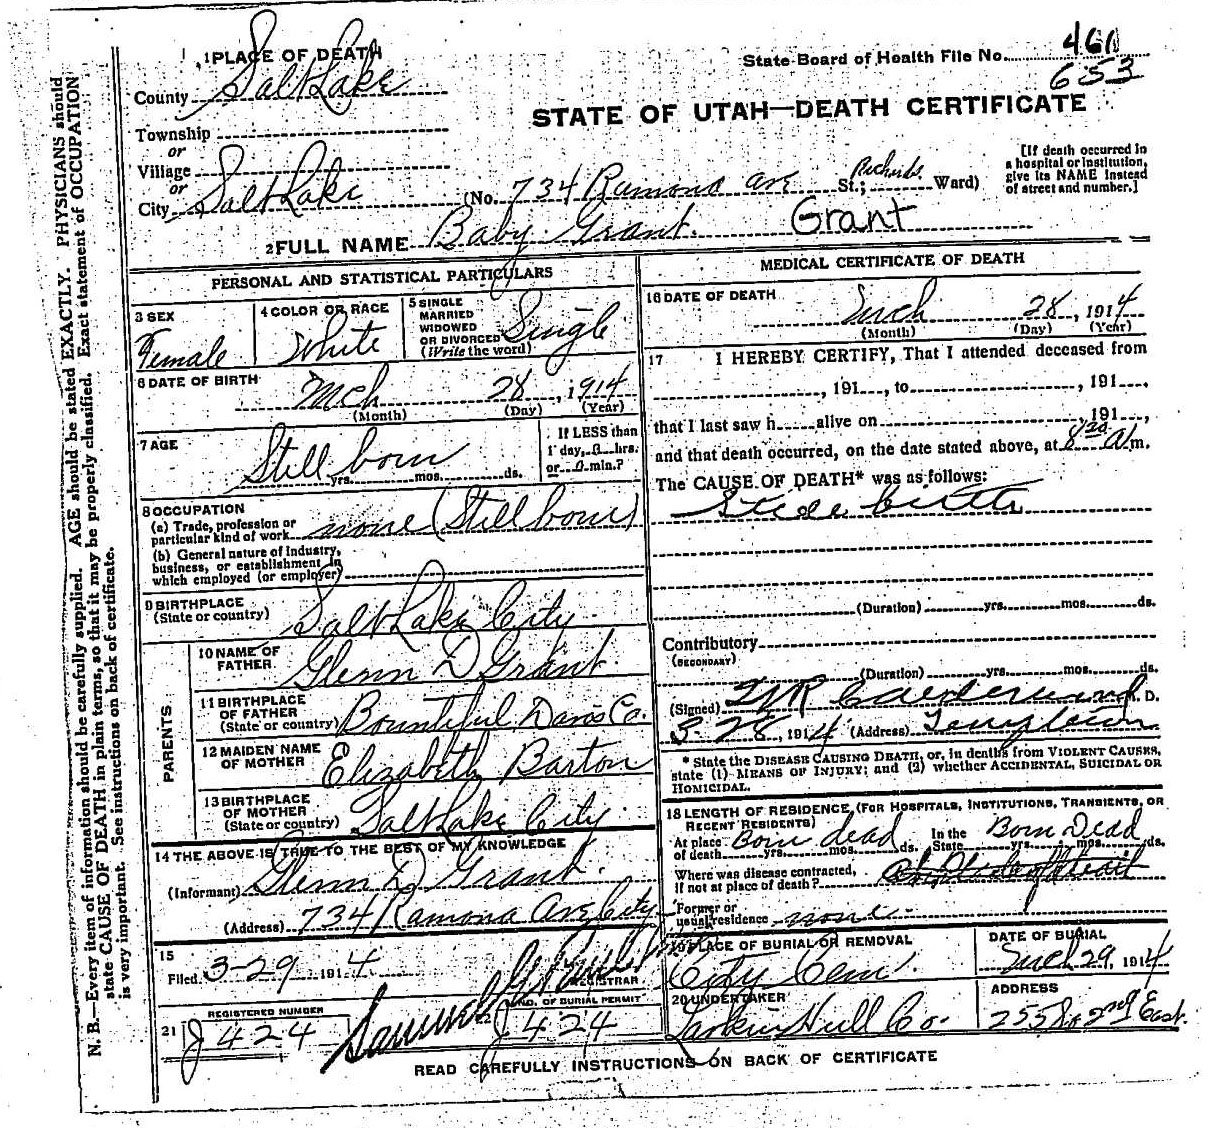 1 PLACE OF DEATH
State Board of Health File No. 461
653
County Salt Lake
STATE OF UTAH—DEATH CERTIFICATE
Township
or
Village
or
City Salt Lake (No. 734 Ramona Ave St.; Richards. Ward)
[If death occurred in
a hospital or institution,
give its NAME instead
of street and number.]
2 FULL NAME Baby Grant. Grant
PERSONAL AND STATISTICAL PARTICULARS
3 SEX
Female
4 COLOR OR RACE
White
5 SINGLE
MARRIED
WIDOWED
OR DIVORCED
(Write the word)
Single
6 DATE OF BIRTH
Mch 28, 1914
(Month) (Day) (Year)
7 AGE
Still born
yrs. mos. ds.
If LESS than
1 day, 0 hrs.
or 0 min.?
8 OCCUPATION
(a) Trade, profession or
particular kind of work none (Still born)
(b) General nature of industry,
business, or establishment in
which employed (or employer)
9 BIRTHPLACE
(State or country) Salt Lake City
PARENTS
10 NAME OF
FATHER Glenn D Grant.
11 BIRTHPLACE
OF FATHER
(State or country) Bountiful Davis Co.
12 MAIDEN NAME
OF MOTHER Elizabeth Barton
13 BIRTHPLACE
OF MOTHER
(State or country) Salt Lake City
14 THE ABOVE IS TRUE TO THE BEST OF MY KNOWLEDGE
(Informant) Glenn D Grant.
(Address) 734 Ramona Ave City
15
Filed 3-29 1914
REGISTRAR
21 REGISTERED NUMBER
J 424
22 NO. OF BURIAL PERMIT
J 424
MEDICAL CERTIFICATE OF DEATH
16 DATE OF DEATH
Mch 28, 1914
(Month) (Day) (Year)
17 I HEREBY CERTIFY, That I attended deceased from
, 191 , to , 191 ,
that I last saw h alive on , 191 ,
and that death occurred, on the date stated above, at 8 30 A m.
The CAUSE OF DEATH* was as follows:
Still birth
(Duration) yrs. mos. ds.
Contributory
(SECONDARY)
(Duration) yrs. mos. ds.
(Signed) M. D.
3-28, 1914 (Address)
* State the DISEASE CAUSING DEATH, or, in deaths from VIOLENT CAUSES,
state (1) MEANS OF INJURY; and (2) whether ACCIDENTAL, SUICIDAL OR
HOMICIDAL.
18 LENGTH OF RESIDENCE (FOR HOSPITALS, INSTITUTIONS, TRANSIENTS, OR
RECENT RESIDENTS)
At place
of death Born dead yrs. mos. ds.
In the
State Born Dead yrs. mos. ds.
Where was disease contracted,
if not at place of death?
Former or
usual residence none
19 PLACE OF BURIAL OR REMOVAL
City Cem.
DATE OF BURIAL
Mch 29, 1914
20 UNDERTAKER
Larkin Hull Co.
ADDRESS
255 So 2nd East.
READ CAREFULLY INSTRUCTIONS ON BACK OF CERTIFICATE
N. B.—Every item of information should be carefully supplied. AGE should be stated EXACTLY. PHYSICIANS should
state CAUSE OF DEATH in plain terms, so that it may be properly classified. Exact statement of OCCUPATION
is very important. See instructions on back of certificate.